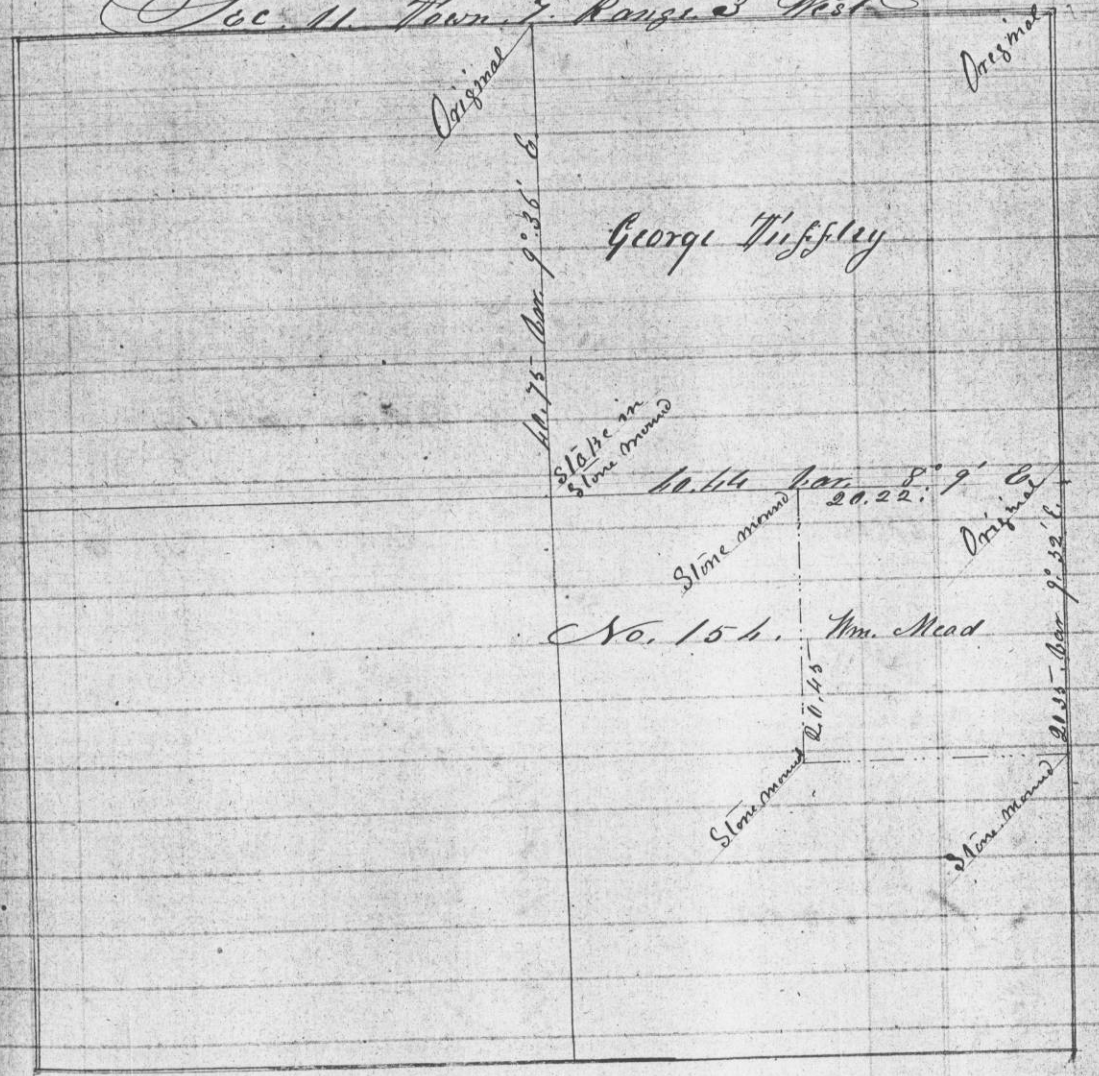 Sec. 11. Town. 7. Range. 3 West
Original
Original
40.75 Var. 9° 36' E.
George Tuffley
Stake in
Stone mound
40.44 Var. 8° 9' E.
20.22.
Stone mound
Original
No. 154. Wm. Mead
20.45
Var 9° 32' E.
Stone mound
Stone mound